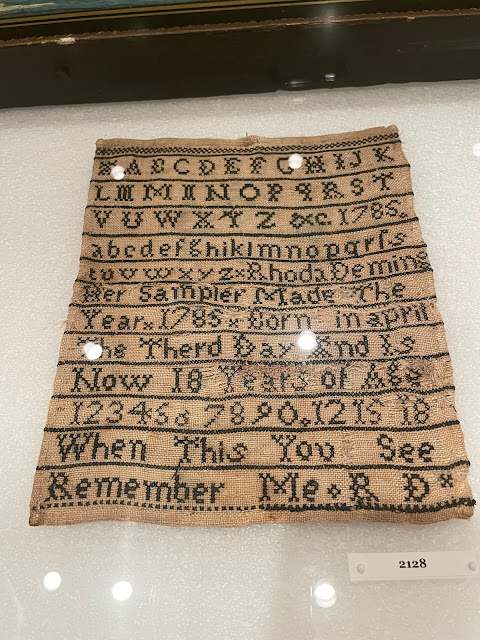 A B C D E F G H I J K
L M N O P Q R S T
V U W X Y Z &c. 1785.
a b c d e f g h i k l m n o p q r ſ s
t u v w x y z × Rhoda Deming
Her Sampler Made The
Year × 1785 × Born in april
The Therd Day And Is
Now 18 Years of Age
1 2 3 4 5 6 7 8 9 0. 12 15 18
When This You See
Remember Me R D
2128